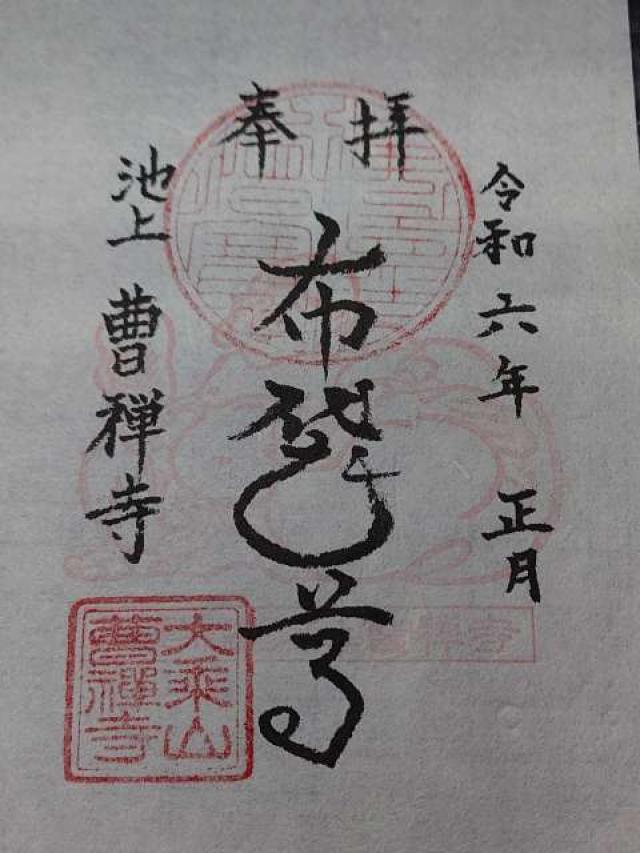 奉拝
令和六年 正月
布袋尊
池上 曹禅寺
大乘山
曹禪寺